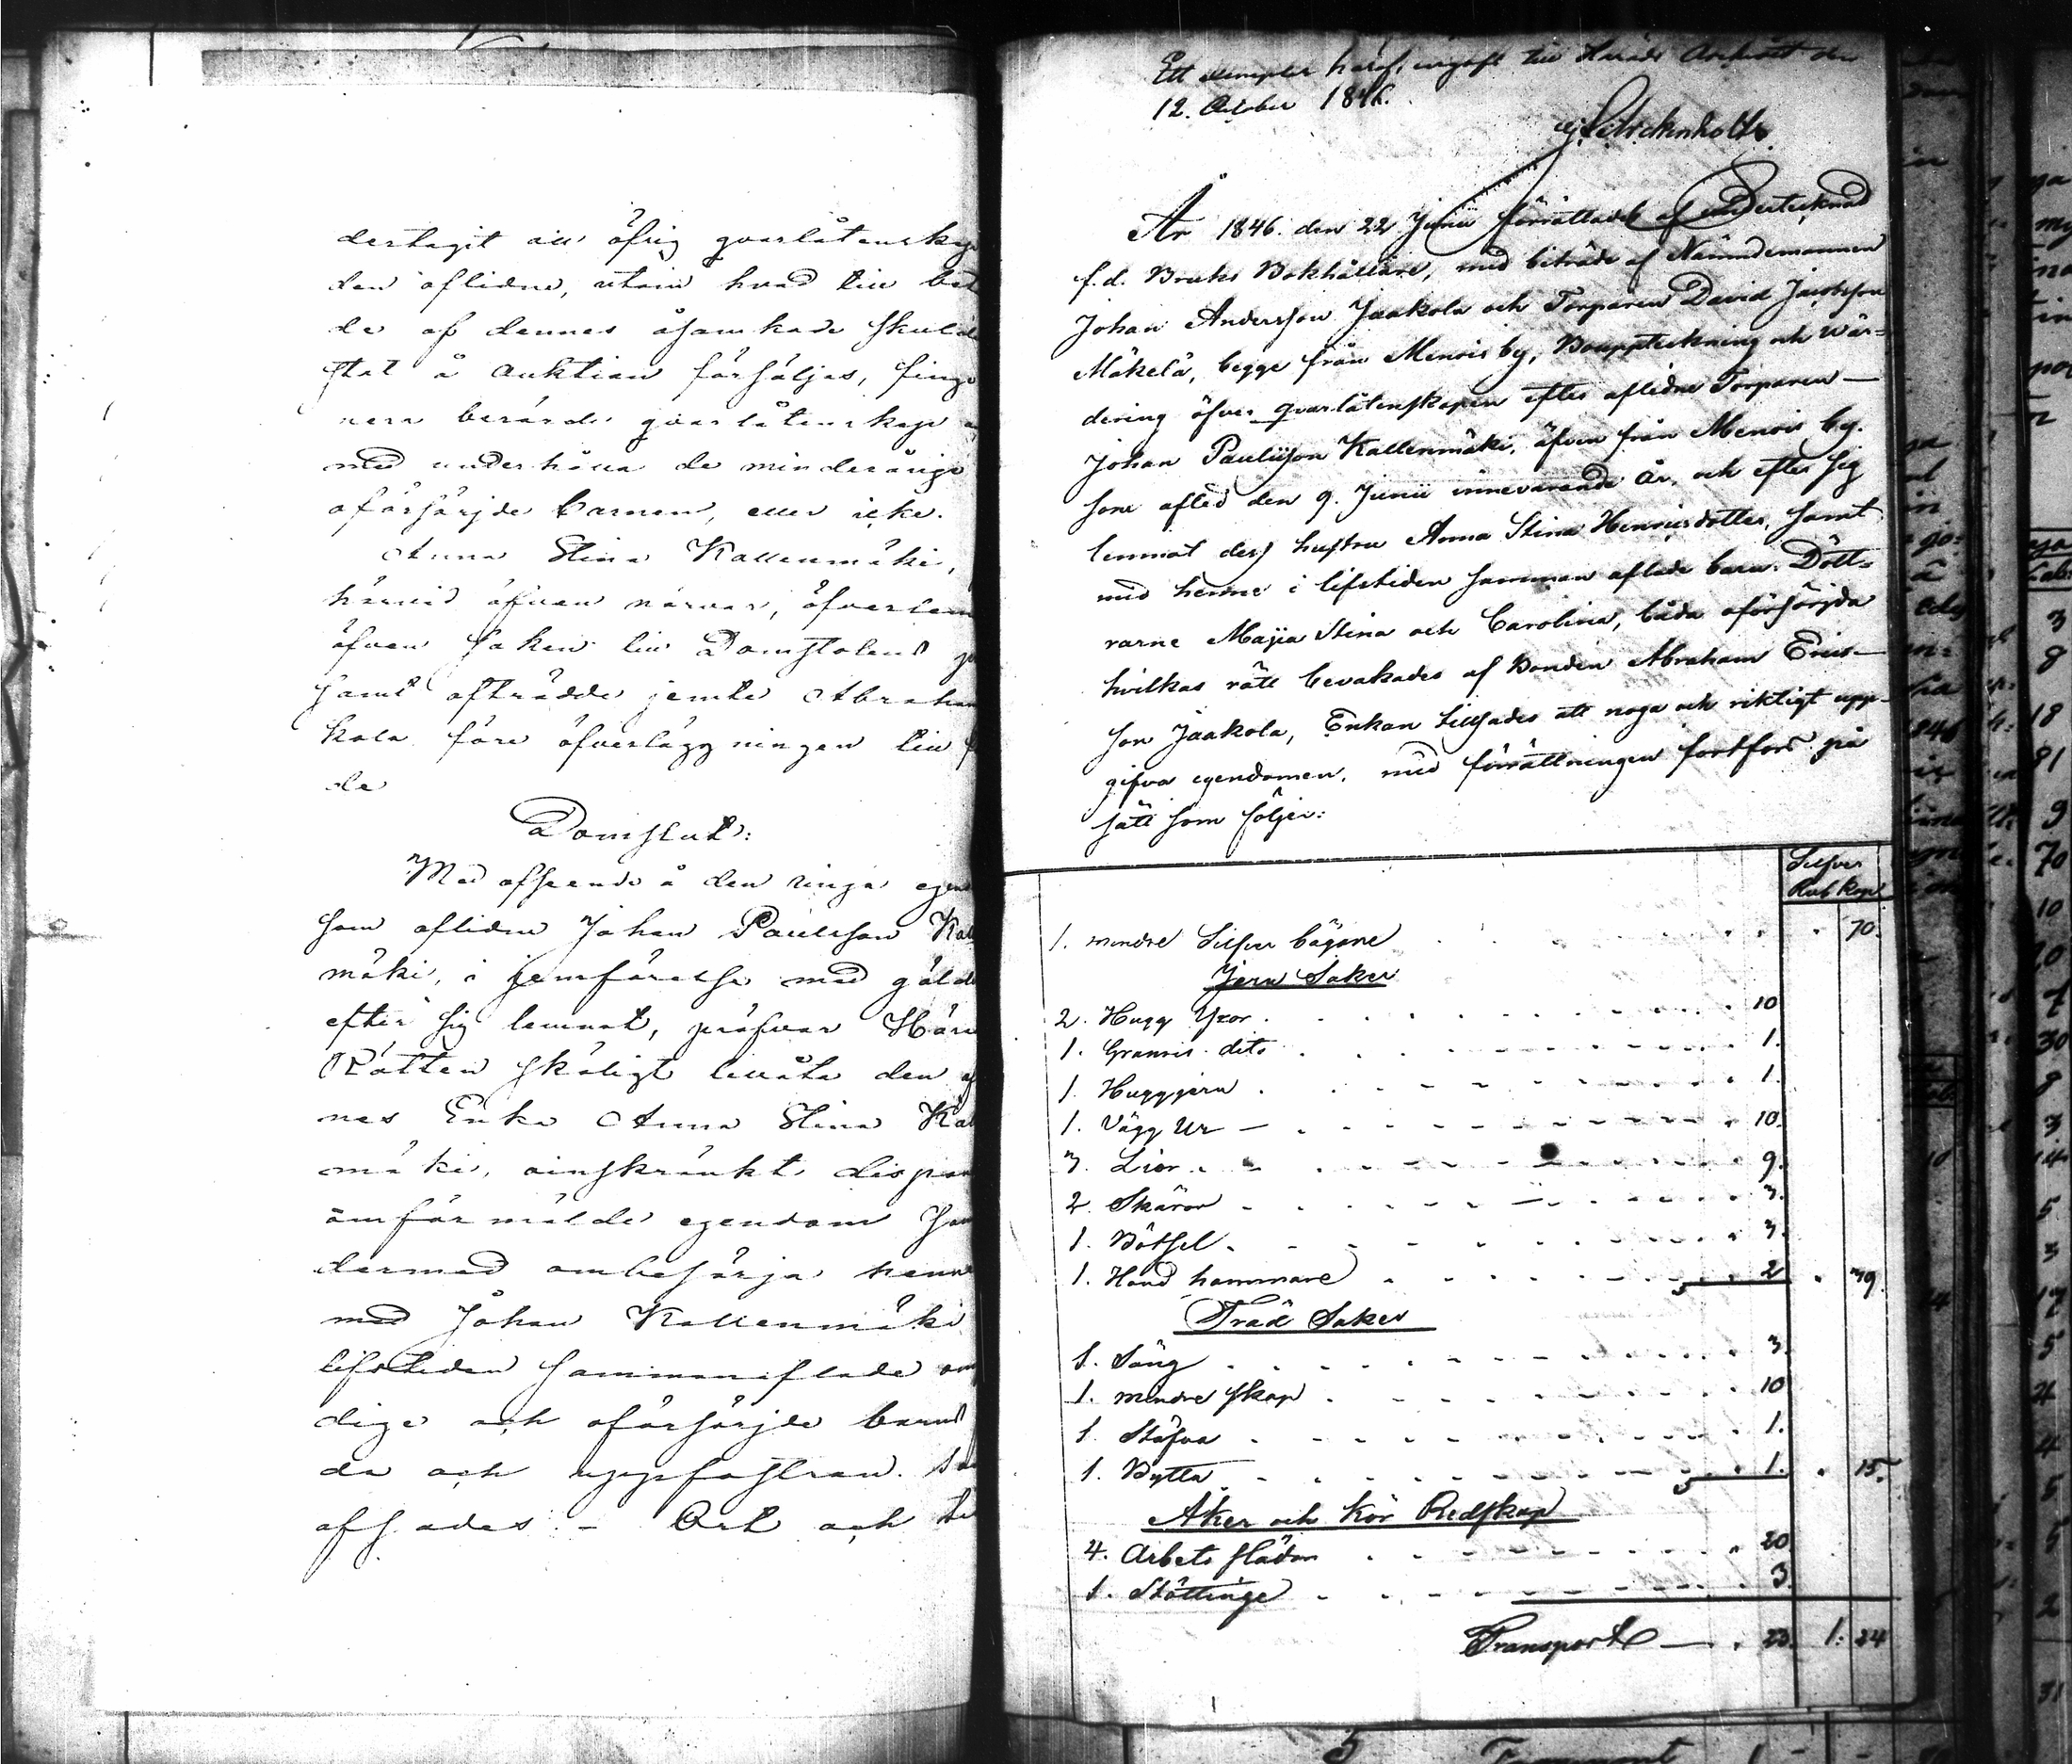 dertagit all öfrig qvarlåtenskap
den aflidne, utom hvad till bet
de af dennes åsamkade skuld
stat å Auktion försäljas, finge
nera berörde qvarlåtenskap
med underhålla de minderårige
oförsörjde barnen, eller icke.
Anna Stina Kallenmäki,
härvid äfven närvar, öfverlem
äfven saken till Domstolens
samt afträdde jemte Abraham
kola före öfverläggningen till
de
Domslut:
Med afseende å den ringa egen
som aflidne Johan Paulsson Kal
mäki, i jemförelse med gäld
efter sig lemnat, pröfvar Hära
Rätten skäligt tillåta den af
nes Enka Anna Stina Kal
mäki, oinskränkt dispon
omförmälde egendom
dermed ombesörja henne
med Johan Kallenmäki
lifstiden sammanaflade
dige och oförsörjde barns
da och uppfostran.
afsades. - Ort och
Ett exemplar häraf, ingift till Härads Archivet den
12. October 1846.
År 1846. den 22 Junii förrättades af undertecknad
f.d. Bruks Bokhållare, med biträde af Nämndemannen
Johan Andersson Jaakola och Torparen David Jacobsson
Mäkelä, begge från Menois by, Bouppteckning och wär=
dering öfver qvarlåtenskapen efter aflidne Torparen —
Johan Paulsson Kallenmäki, äfven från Menois by.
som afled den 9. Junii innevarande År, och efter sig
lemnat dess hustru Anna Stina Henricsdotter, samt
med henne i lifstiden samman aflade barn: Dött=
rarne Maja Stina och Carolina, båda oförsörjda
hvilkas rätt bevakades af Bonden Abraham Erics-
son Jaakola, Enkan tillsades att noga och riktigt upp-
gifva egendomen, med förrättningen fortfors på
sätt som följer:
Silfver
Rub. Kop.
1. mindre Silfver bägare . . . 70.
Jern Saker
2. Hugg Yxor . . . 10
1. Granris dito . . . 1.
1. Huggjern . . . 1.
1. Vägg Ur — . . . 10.
3. Liar . . . 9.
2 Skäror . . . 3.
1. Bötsel . . . 3.
1. Hand hammare . . . 2 . 39.
Träd Saker
1. Säng . . . 3.
1. mindre skåp . . . 10
1. Stäfva . . . 1.
1. Bytta . . . 1. . 15.
Åker och Kör Redskap
4. Arbets slädar . . . 20
1. Stöttinge . . . 3.
Transport — . 23. 1. 24